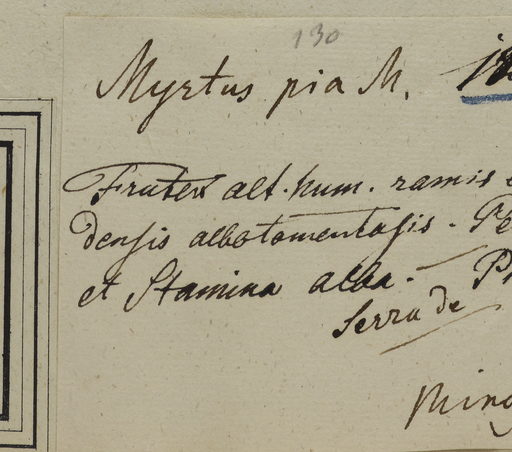 130
Myrtus pia M.
Frutex alt. hum. ramis
densis albotomentosis. Pe
et Stamina alba. — P
Serra de
Mina